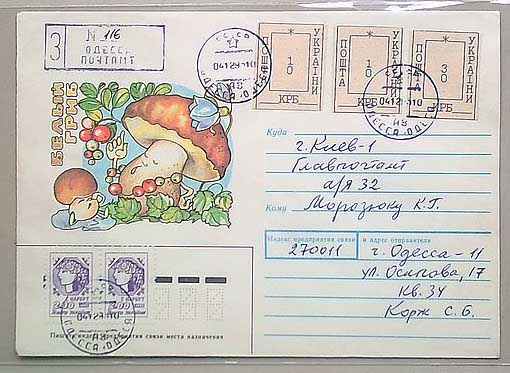 З
№ 116
ОДЕССА
ПОЧТАМТ
СССР
0412
10
ОДЕССА-ОДЕСА
УКРАЇНИ
10
КРБ
ПОШТА
УКРАЇНИ
10
КРБ
ПОШТА
УКРАЇНИ
30
КРБ
БЕЛЫЙ
ГРИБ
Куда
г. Киев-1
Главпочтамт
а/я 32
Кому
Морозюку К.Г.
Индекс предприятия связи
и адрес отправителя
270011
г. Одесса-11
ул. Осипова, 17
кв. 34
Корж С. Б.
ОДЕССА-ОДЕСА
Пишите индекс предприятия связи места назначения